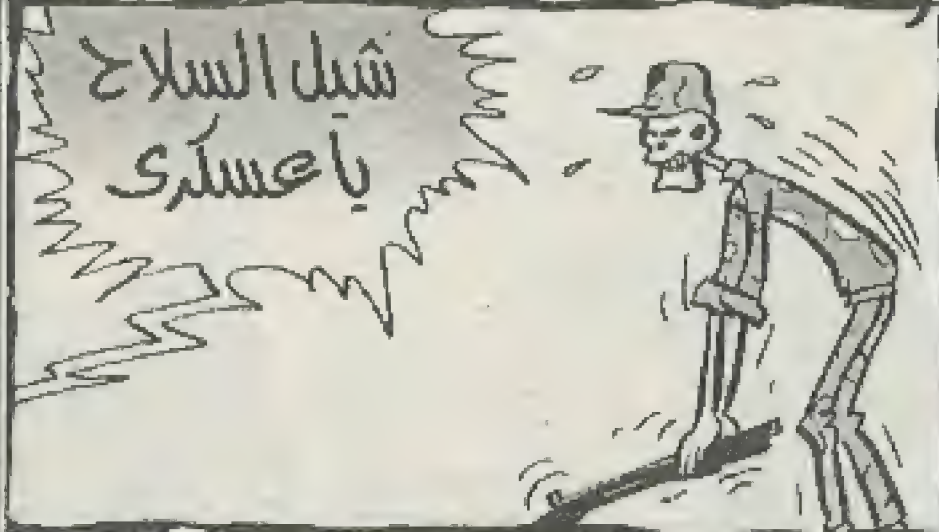 شيل السلاح
يا عسكرى